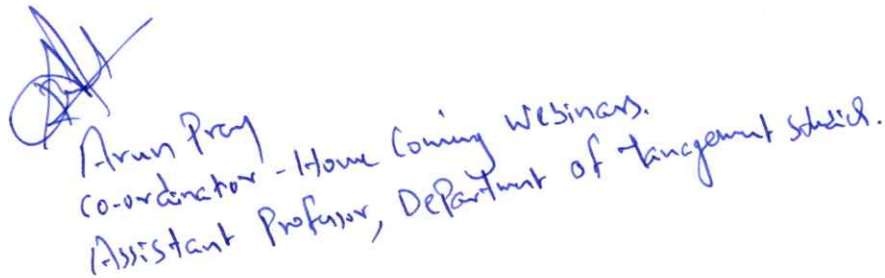 Arun Pray
Co-ordinator - Home Coming Webinars.
Assistant Professor, Department of Management Studies.